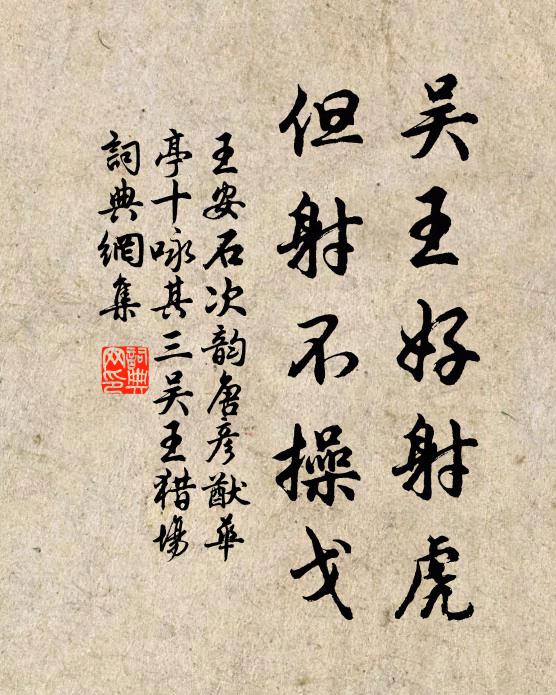 吴王好射虎
但射不操戈
王安石次韵唐彦猷華
亭十咏其三吴王猎場
詞典網集
詞典
网印